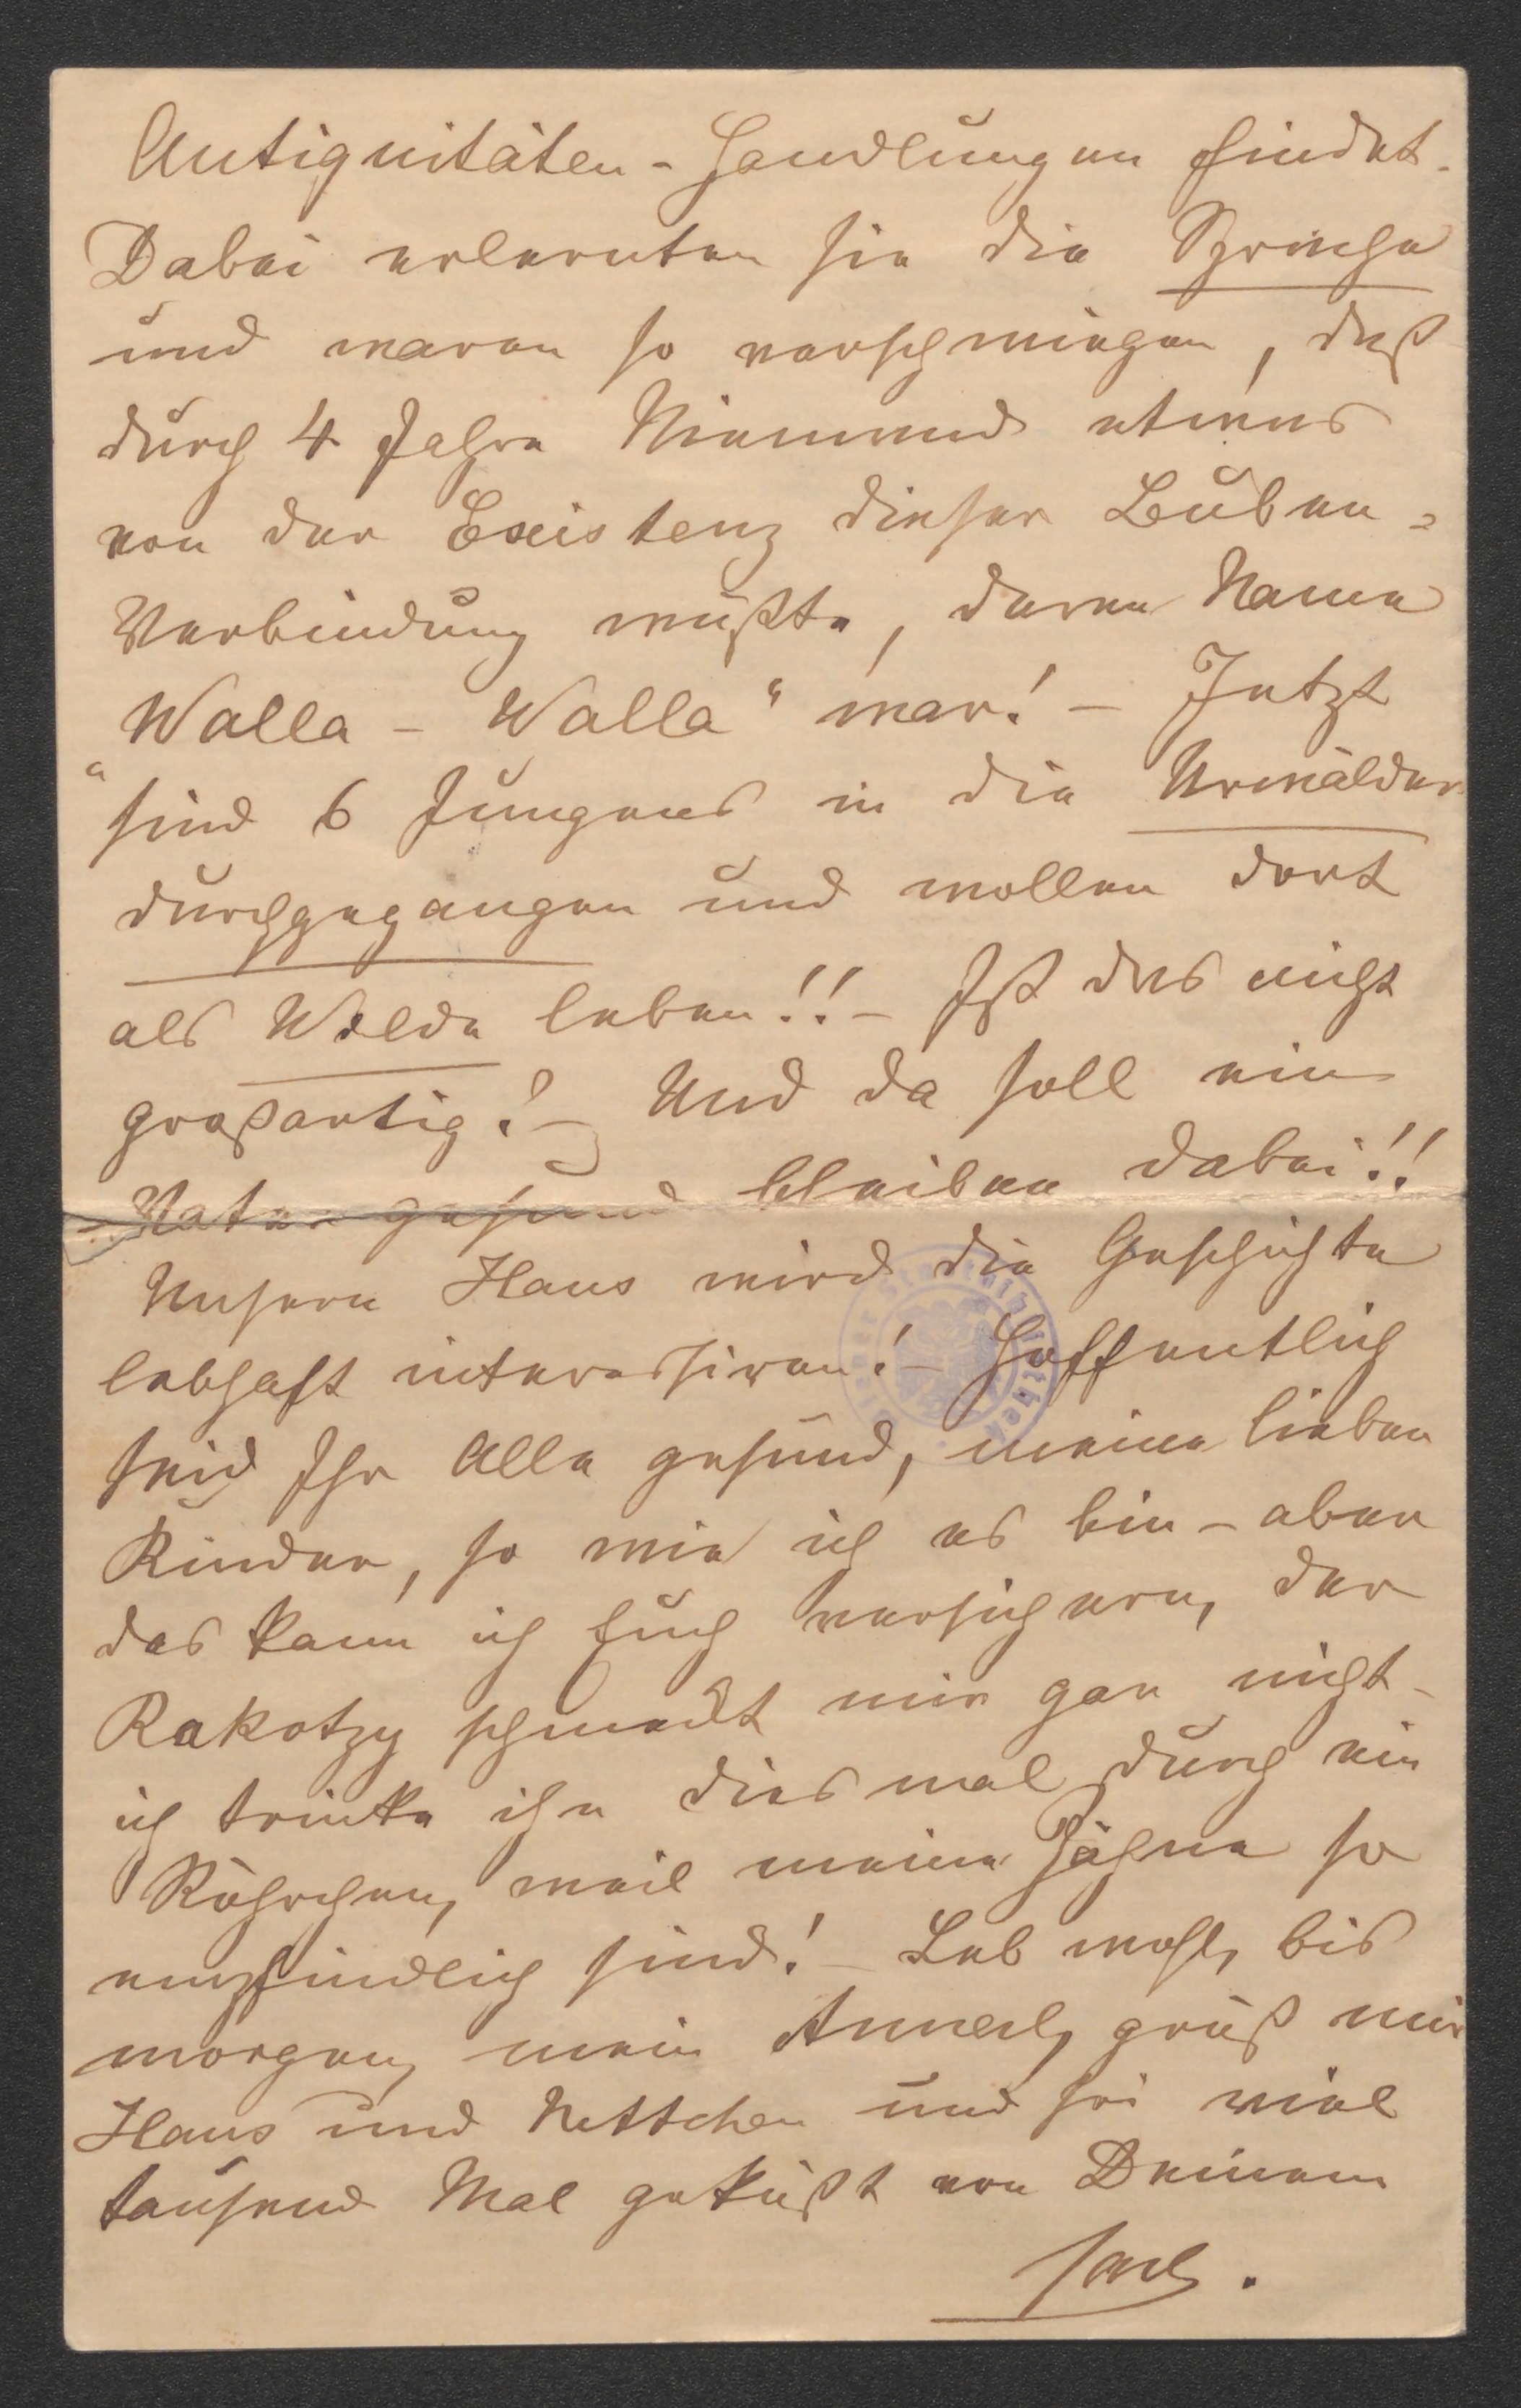 Antiquitäten-Handlungen findet.
Dabei erlernten sie die Sprache
und waren so verschwiegen, daß
durch 4 Jahre Niemand etwas
von der Existenz dieser Buben-
Verbindung wußte, deren Name
„Walla - Walla“ war! – Jetzt
sind 6 Jungens in die Urwälder
durchgegangen und wollen dort
als Wilde leben!! – Ist das nicht
großartig? – Und da soll ein
Vater gesund bleiben dabei!!
Unsern Hans wird die Geschichte
lebhaft interessiren! – Hoffentlich
seid Ihr Alle gesund, meine lieben
Kinder, so wie ich es bin – aber
das kann ich Euch versichern, der
Rakotzy schmeckt mir gar nicht –
ich trinke ihn diesmal durch ein
Röhrchen, weil meine Zähne so
empfindlich sind! – Leb wohl, bis
morgen, mein Annerl, grüß mir
Hans und Nettchen und sei viel
tausend Mal geküßt von Deinem